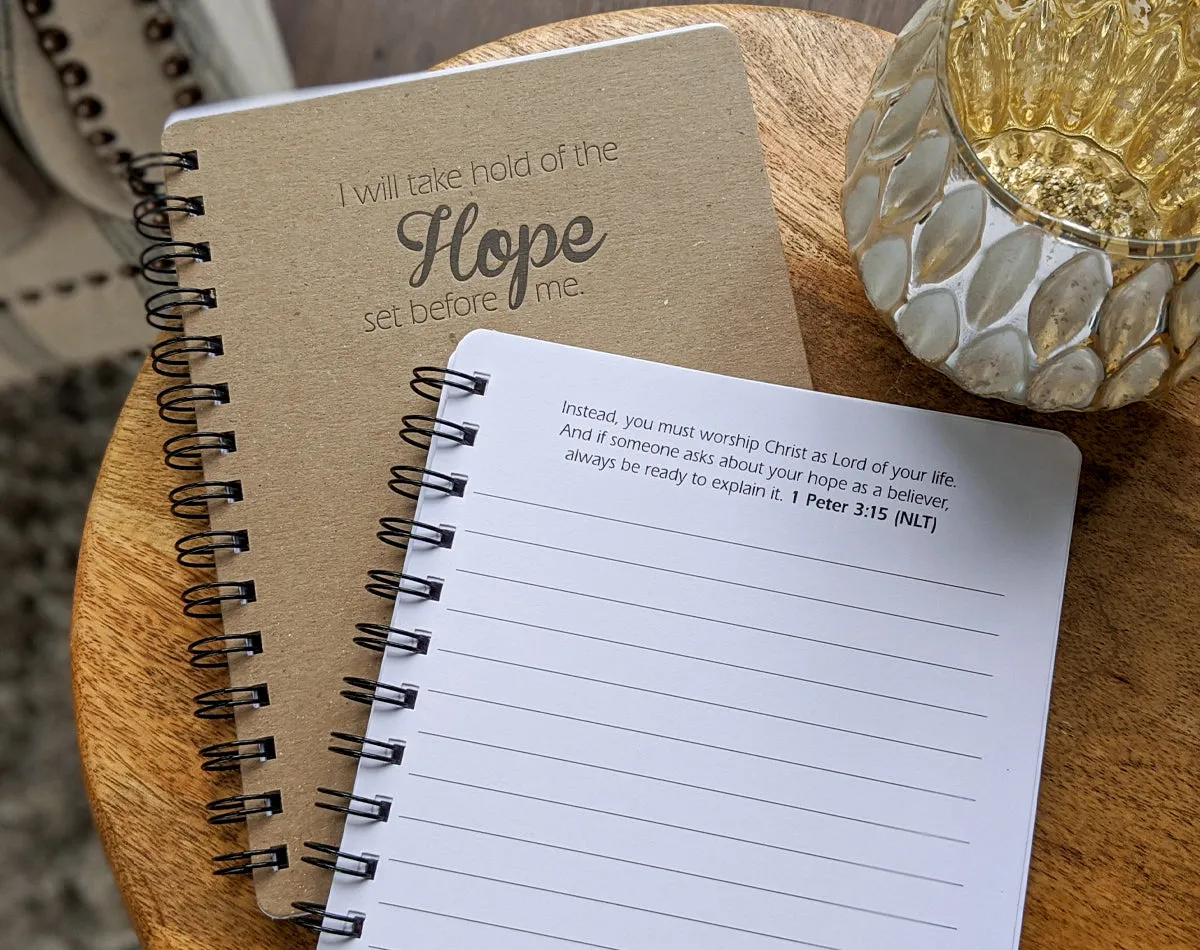 I will take hold of the
Hope
set before me.
Instead, you must worship Christ as Lord of your life.
And if someone asks about your hope as a believer,
always be ready to explain it. 1 Peter 3:15 (NLT)